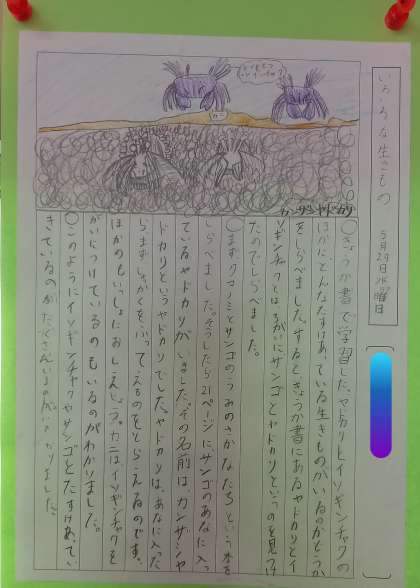 いろいろな生きもの
5月29日水曜日
カンザシヤドカリ
○きょうか書で学習した、ヤドカリとイソギンチャクの
ほかにどんなたすけあっている生きものがいるのかどうか
をしらべました。するときょうか書にあるヤドカリとイ
ソギンチャクとはちがいにサンゴとヤドカリというのを見つけ
たのでしらべました。
○まずクマノミとサンゴのうみのさかなたちという本を
しらべました。そうしたら21ページにサンゴのあなに入っ
ているヤドカリがいました。その名前は、カンザシヤ
ドカリというヤドカリでした。ヤドカリは、あなに入った
らまずしょっかくをふってえものをとらえるのです。
ほかのもいっしょにおしえよう。カニはイソギンチャクを
がいにつけているのもいるのがわかりました。
○このようにイソギンチャクやサンゴとたすけあってい
きているのがたくさんいるのが かりました。